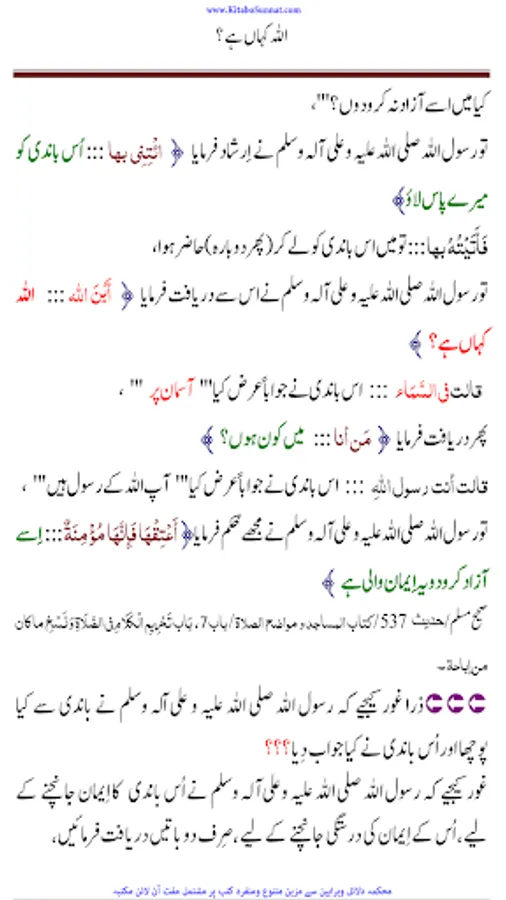 www.KitaboSunnat.com
اللہ کہاں ہے؟
کیا میں اسے آزاد نہ کرودوں؟""،
تو رسول اللہ صلی اللہ علیہ وعلی آلہ وسلم نے اِرشاد فرمایا ﴿ ائْتِنِى بها ::: اُس باندی کو
میرے پاس لاؤ﴾
فَأَتَيْتُهُ بها ::: تو میں اس باندی کو لے کر(پھر دوبارہ) حاضر ہوا،
تو رسول اللہ صلی اللہ علیہ وعلی آلہ وسلم نے اس سے دریافت فرمایا ﴿ أَيْنَ الله ::: اللہ
کہاں ہے؟ ﴾
قالت فى السَّمَاء ::: اس باندی نے جواباً عرض کیا"" آسمان پر ""،
پھر دریافت فرمایا ﴿ مَن أنا ::: میں کون ہوں؟ ﴾
قالت أنت رسول اللهِ ::: اس باندی نے جواباً عرض کیا"" آپ اللہ کے رسول ہیں""،
تو رسول اللہ صلی اللہ علیہ وعلی آلہ وسلم نے مجھے حُکم فرمایا﴿ أَعْتِقْهَا فَإِنَّهَا مُؤْمِنَةٌ ::: اِسے
آزاد کرودو یہ اِیمان والی ہے ﴾
صحیح مسلم/حدیث 537/کتاب المساجد و مواضح الصلاة/باب7، بَاب تَحْرِيمِ الْكَلَامِ فى الصَّلَاةِ وَنَسْخِ ما كان
من إباحة۔
ذرا غور کیجیے کہ رسول اللہ صلی اللہ علیہ وعلی آلہ وسلم نے باندی سے کیا
پوچھا اور اُس باندی نے کیا جواب دِیا؟؟؟
غور کیجیے کہ رسول اللہ صلی اللہ علیہ وعلی آلہ وسلم نے اُس باندی کا اِیمان جانچنے کے
لیے، اُس کے اِیمان کی درستگی جانچنے کے لیے، صِرف دو باتیں دریافت فرمائیں،
محکمہ دلائل وبراہین سے مزین متنوع ومنفرد کتب پر مشتمل مفت آن لائن مکتبہ